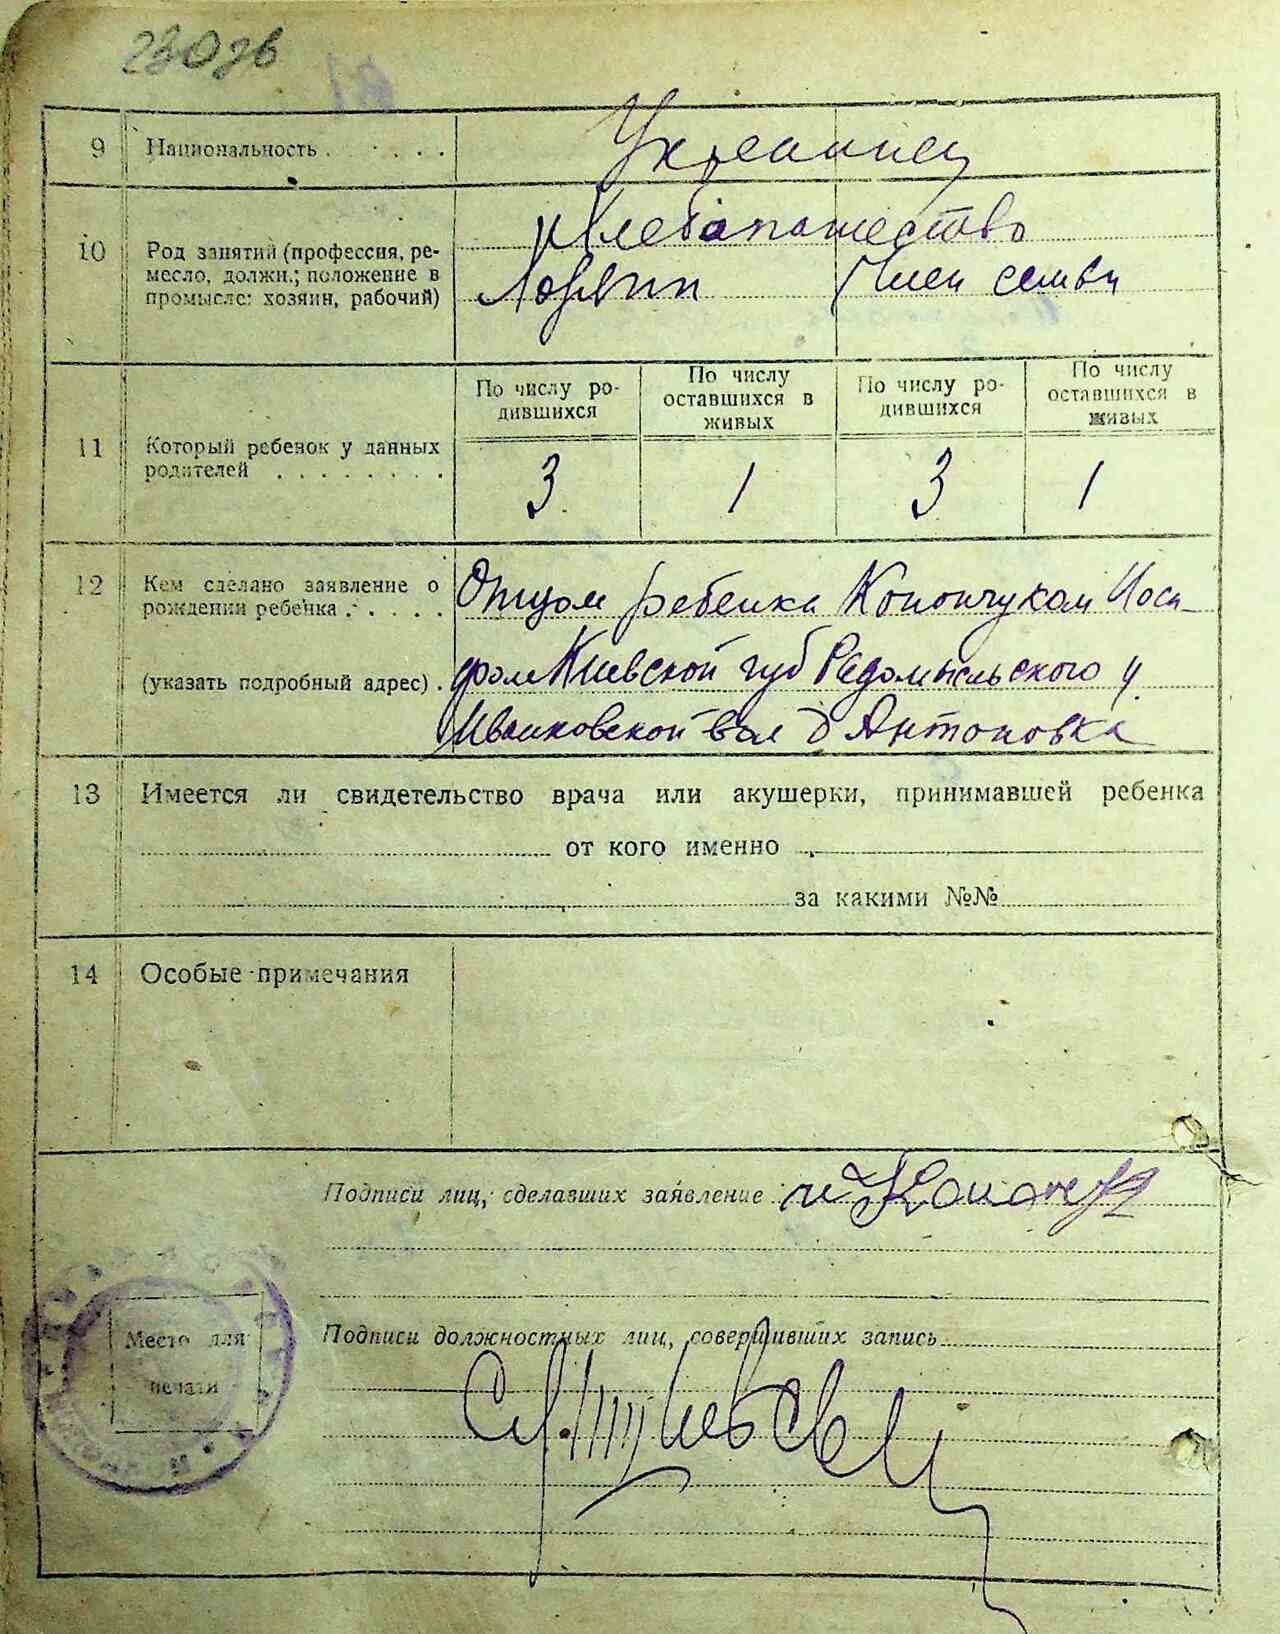 230 зв
9 Национальность . . . . . . Украинец
10 Род занятий (профессия, ре-
месло, должн.; положение в
промысле: хозяин, рабочий)
Хлебопашество
Хозяин Член семьи
По числу ро-
дившихся
По числу
оставшихся в
живых
По числу ро-
дившихся
По числу
оставшихся в
живых
11 Который ребенок у данных
родителей . . . . . . . .
3 1 3 1
12 Кем сделано заявление о
рождении ребенка . . . . .
(указать подробный адрес) .
Отцом ребенка Конончуком Иоси
фом Киевской губ Радомысльского у
Иванковской вол д Антоновка
13 Имеется ли свидетельство врача или акушерки, принимавшей ребенка
от кого именно
за какими №№
14 Особые примечания
Подписи лиц, сделавших заявление
Подписи должностных лиц, совершивших запись
Место для
печати